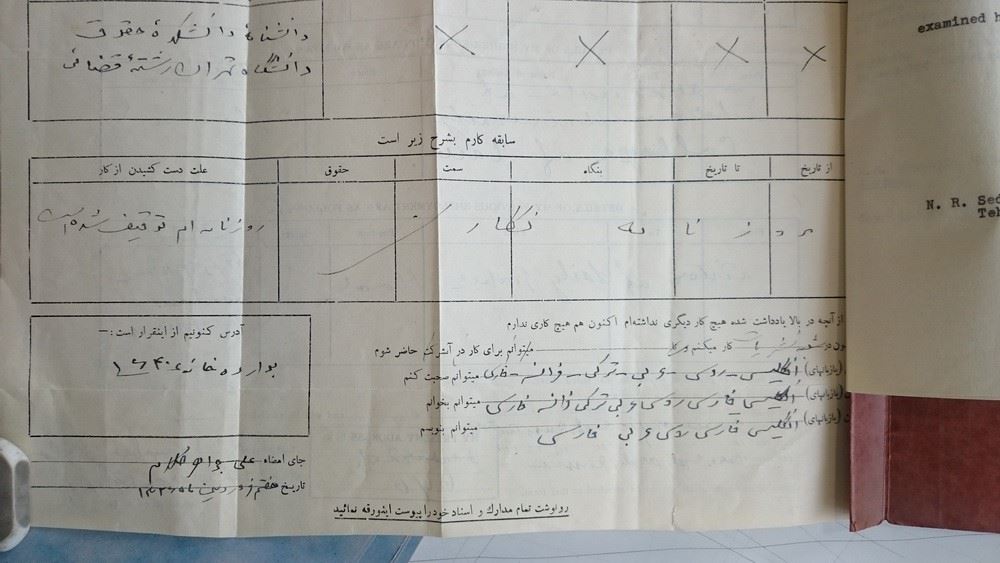 دانشنامهٔ دانشکدهٔ حقوق
دانشگاه تهران رشتهٔ قضائی
examined h
سابقه کارم بشرح زیر است
از تاریخ
تا تاریخ
بنگاه
سمت
حقوق
علت دست کشیدن از کار
N. R. Sed
Teh
روزنامه نگار
روزنامه ام توقیف شده است
از آنچه در بالا یادداشت شده هیچ کار دیگری نداشته‌ام اکنون هم هیچ کاری ندارم
کار میکنم میتوانم برای کار در آنشرکت حاضر شوم
(بازبانهای) انگلیسی - روسی - عربی - ترکی - فرانسه - فارسی میتوانم صحبت کنم
(بازبانهای) انگلیسی فارسی روسی عربی ترکی فرانسه فارسی میتوانم بخوانم
(بازبانهای) انگلیسی فارسی روسی عربی فارسی میتوانم بنویسم
آدرس کنونیم از اینقرار است :—
بوارده خانه
جای امضاء علی جواهر کلام
تاریخ هفتم فروردین ماه
رونوشت تمام مدارك و اسناد خود را پیوست اینورقه نمائید